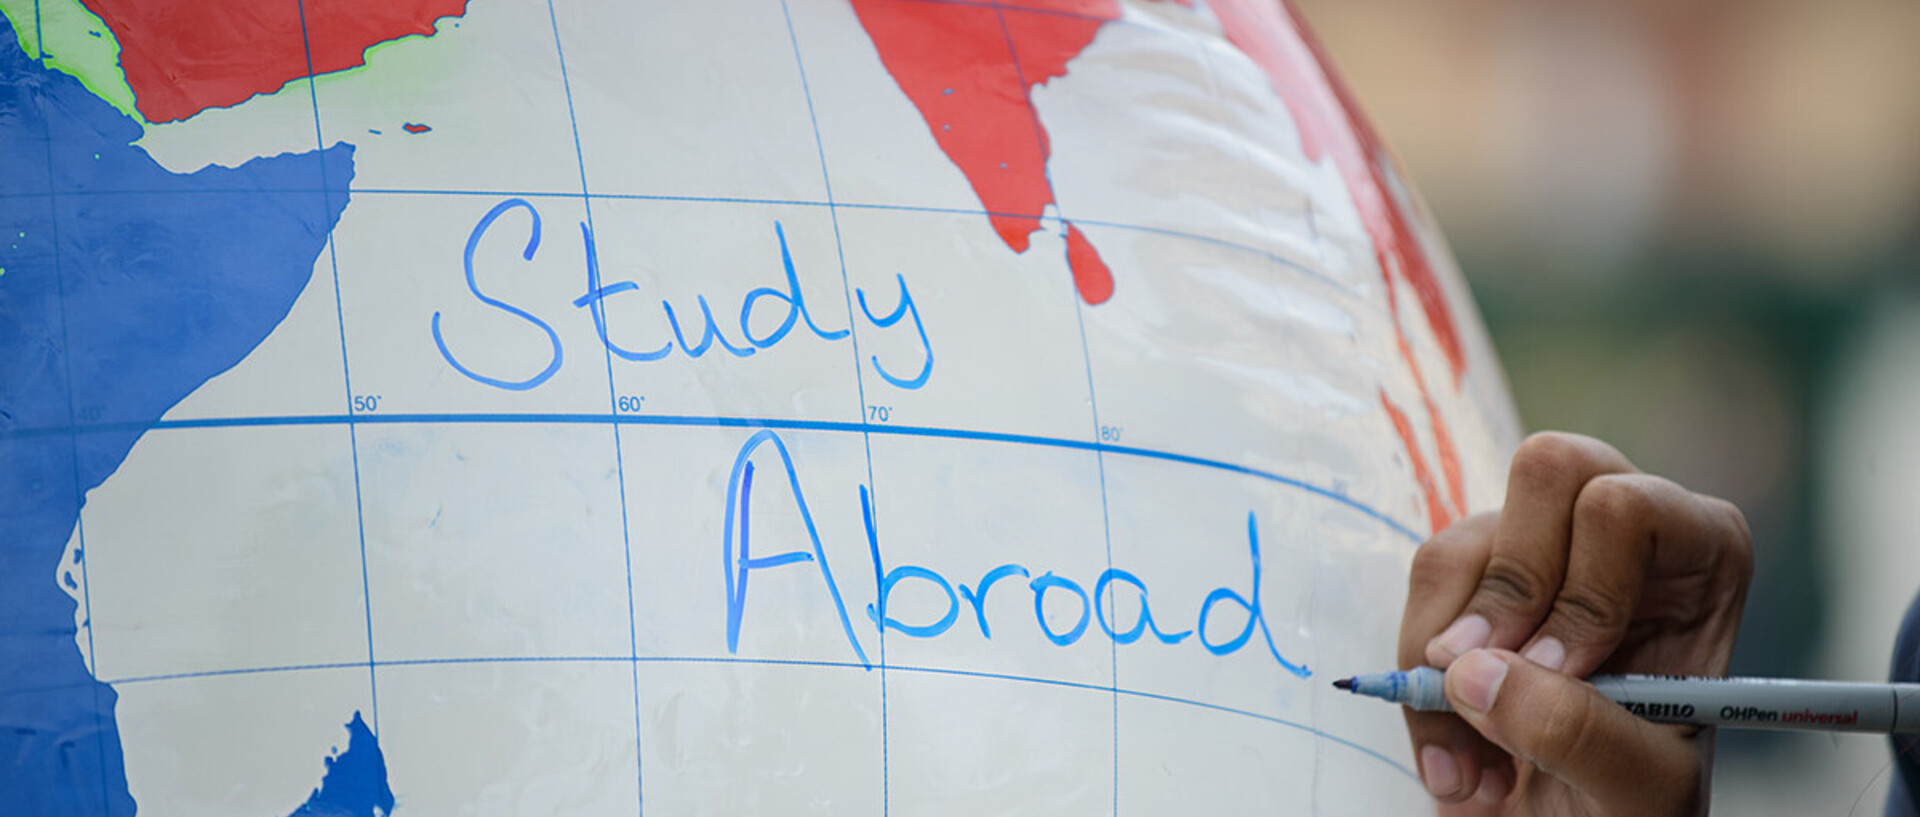 Study
40°
50°
60°
70°
80°
Abroad
TABILO OHPen universal